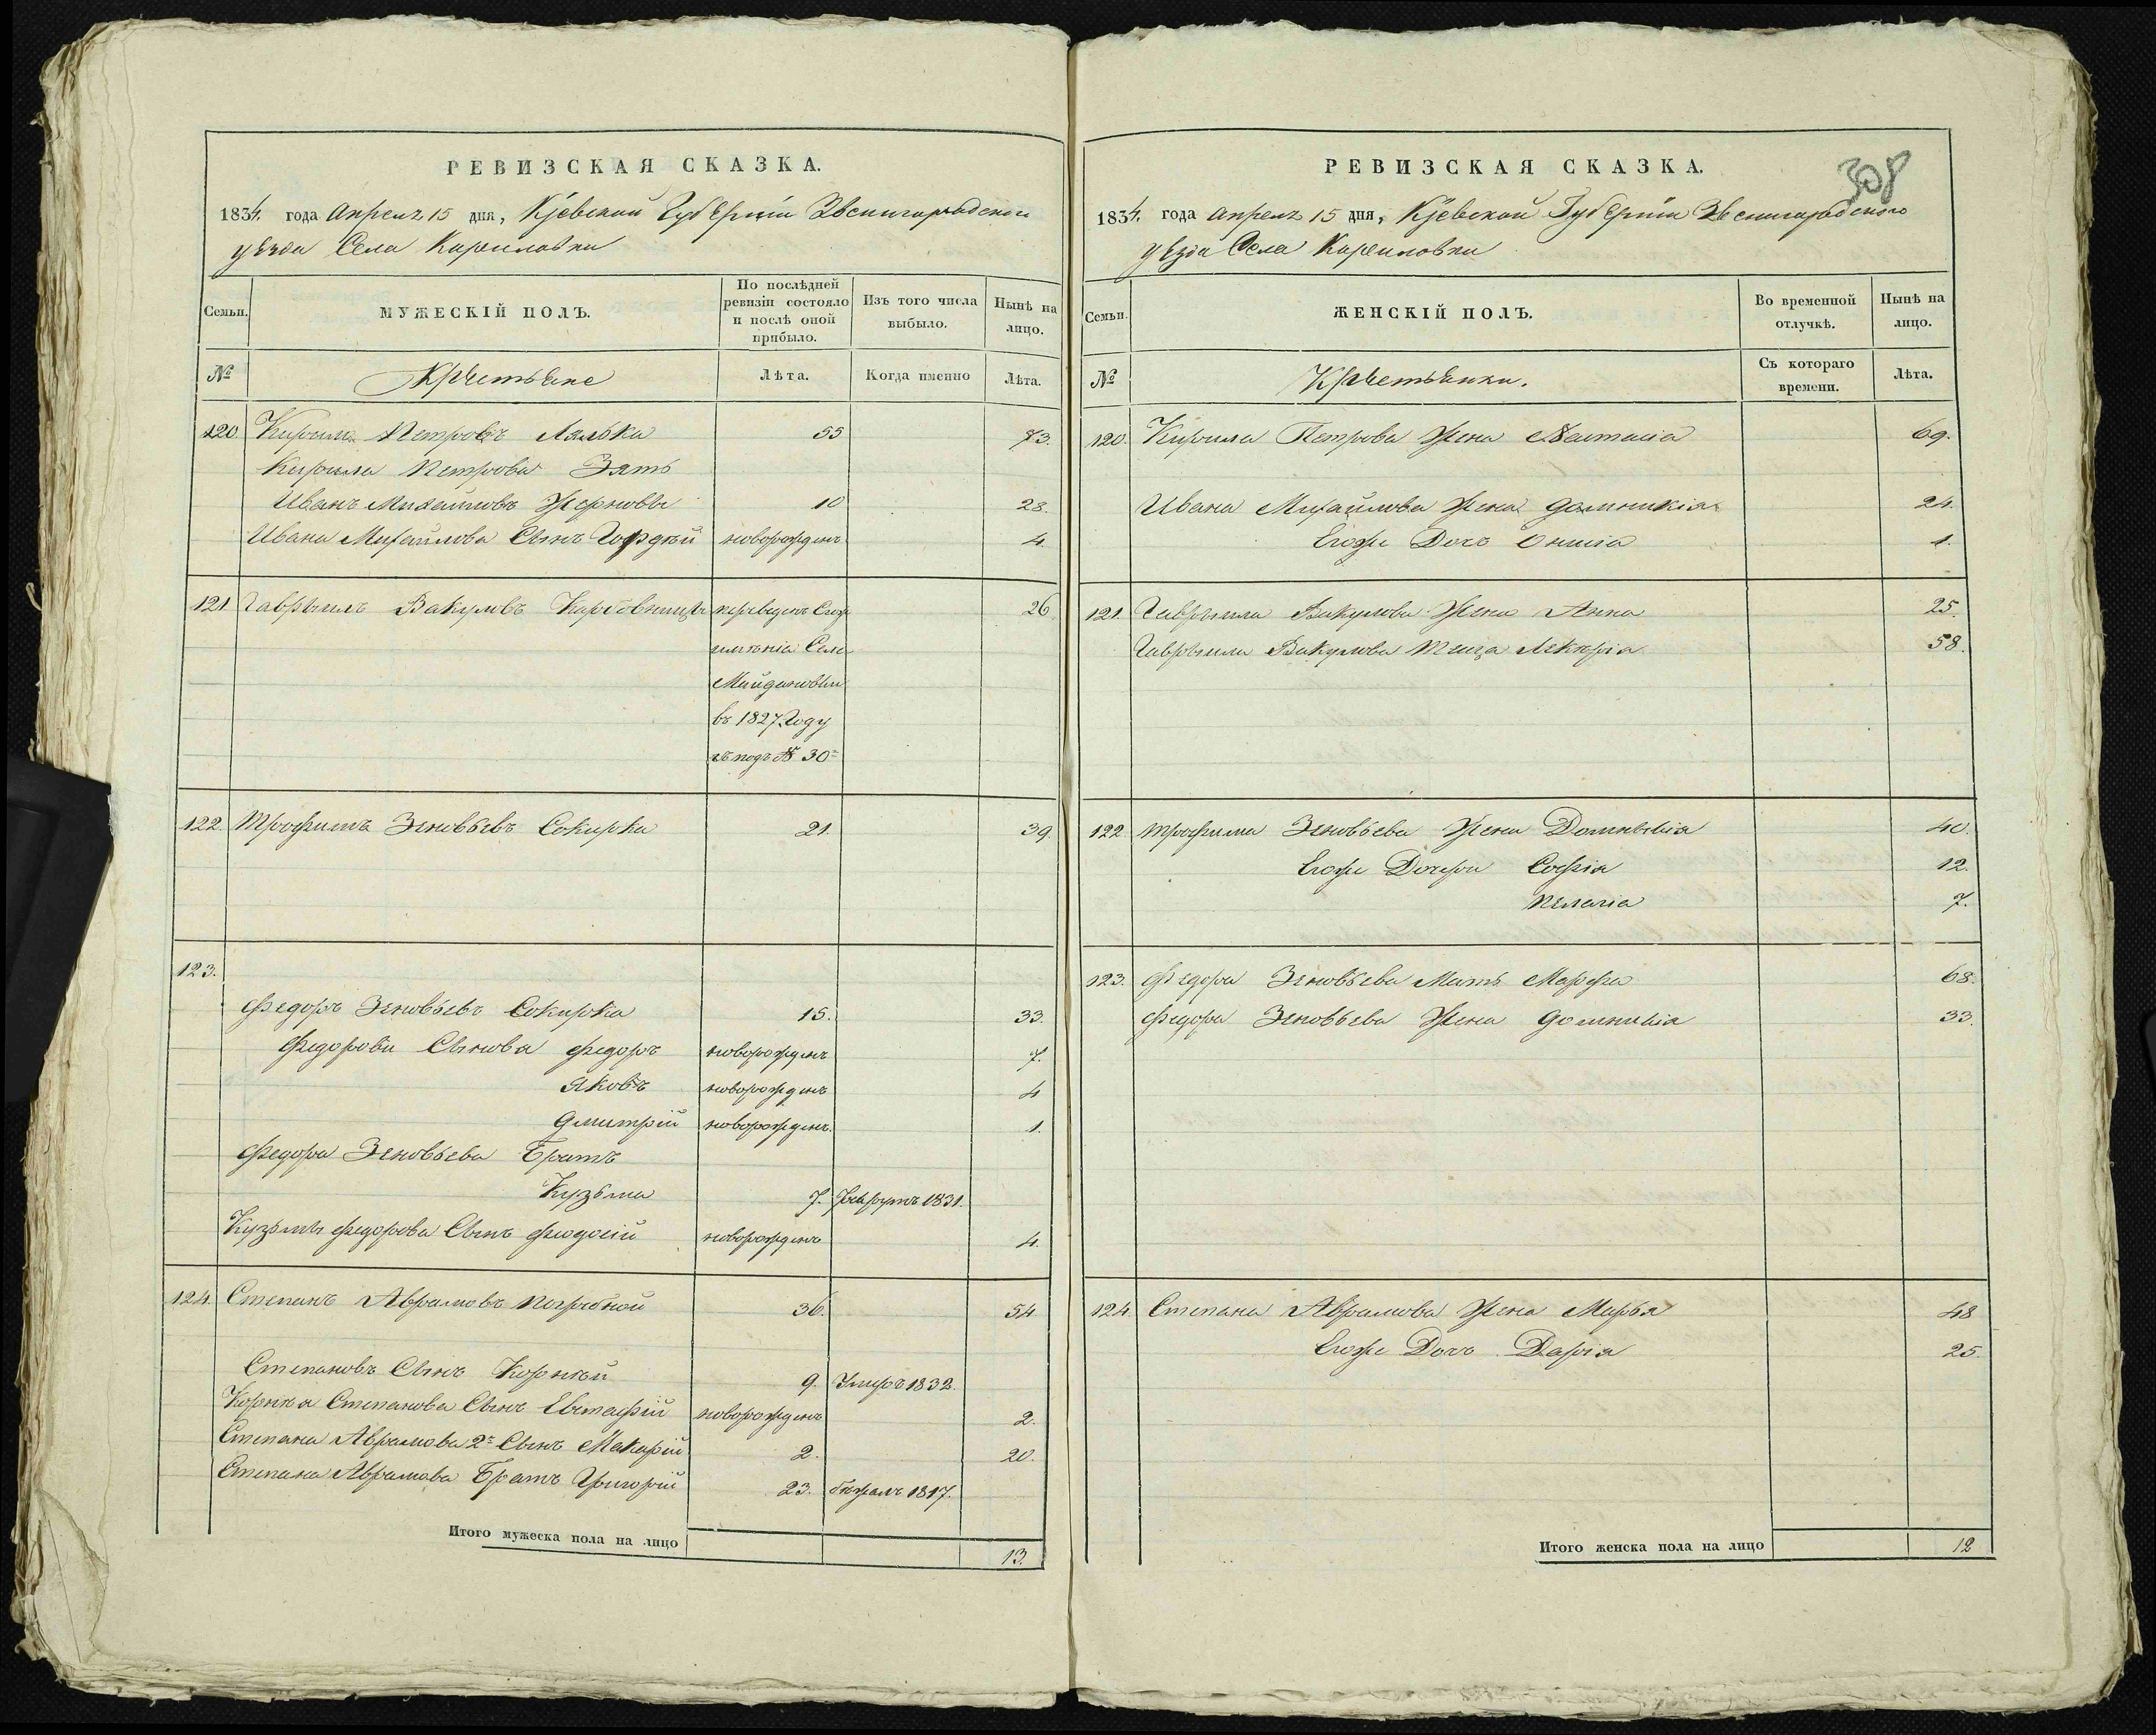 РЕВИЗСКАЯ СКАЗКА.
1834 года Апреля 15 дня, Кіевской Губерніи Звенигородского
уезда Села Кирилловки
Семьи.
МУЖЕСКІЙ ПОЛЪ.
По послѣдней ревизіи состояло и послѣ оной прибыло.
Изъ того числа выбыло.
Нынѣ на лицо.
№
Крестьяне
Лѣта.
Когда именно
Лѣта.
120. Кирило Петровъ Лялька 55 73.
Кирила Петрова Зять
Иванъ Михайловъ 10 28.
Ивана Михайлова Сынъ Гордѣй новорожденъ 4.
121 Гаврыилъ Вакуловъ переведенъ Сего 26.
имѣнія Села
Майдановки
въ 1827 Году
подъ № 30
122. Трофимъ Зѣновьевъ Сокирка 21. 39.
123.
Федоръ Зѣновьевъ Сокирка 15. 33.
Федоровы Сынова Федоръ новорожденъ 7.
Яковъ новорожденъ 4
Дмитрій новорожденъ 1.
Федора Зѣновьева Братъ
Кузьма 7. Рекрутъ 1831.
Кузьмы Федорова Сынъ Феодосій новорожденъ 4.
124. Степанъ Аврамовъ Погребной 36. 54
Степановъ Сынъ Корнѣй 9. Умеръ 1832.
Корнѣя Степанова Сынъ Евстафій новорожденъ 2.
Степана Аврамова 2й Сынъ Макарій 2. 20.
Степана Аврамова Братъ Григорій 23. бежалъ 1817.
Итого мужеска пола на лицо 13.
308
РЕВИЗСКАЯ СКАЗКА.
1834 года Апреля 15 дня, Кіевской Губерніи Звенигородского
уезда Села Кирилловки
Семьи.
ЖЕНСКІЙ ПОЛЪ.
Во временной отлучкѣ.
Нынѣ на лицо.
№
Крестьянки.
Съ котораго времени.
Лѣта.
120. Кирила Петрова Жена Настасія 69.
Ивана Михайлова Жена Домникія 24.
Егоже Дочь 1.
121. Гаврыила Вакулова Жена Анна 25.
Гаврыила Вакулова Теща 58.
122 Трофима Зѣновьева Жена Домникія 40.
Егоже Дочери Софія 12.
Пелагія 7.
123. Федора Зѣновьева Мать Марфа 68.
Федора Зѣновьева Жена Домникія 33.
124. Степана Аврамова Жена Марья 48
Егоже Дочь Дарія 25.
Итого женска пола на лицо 12